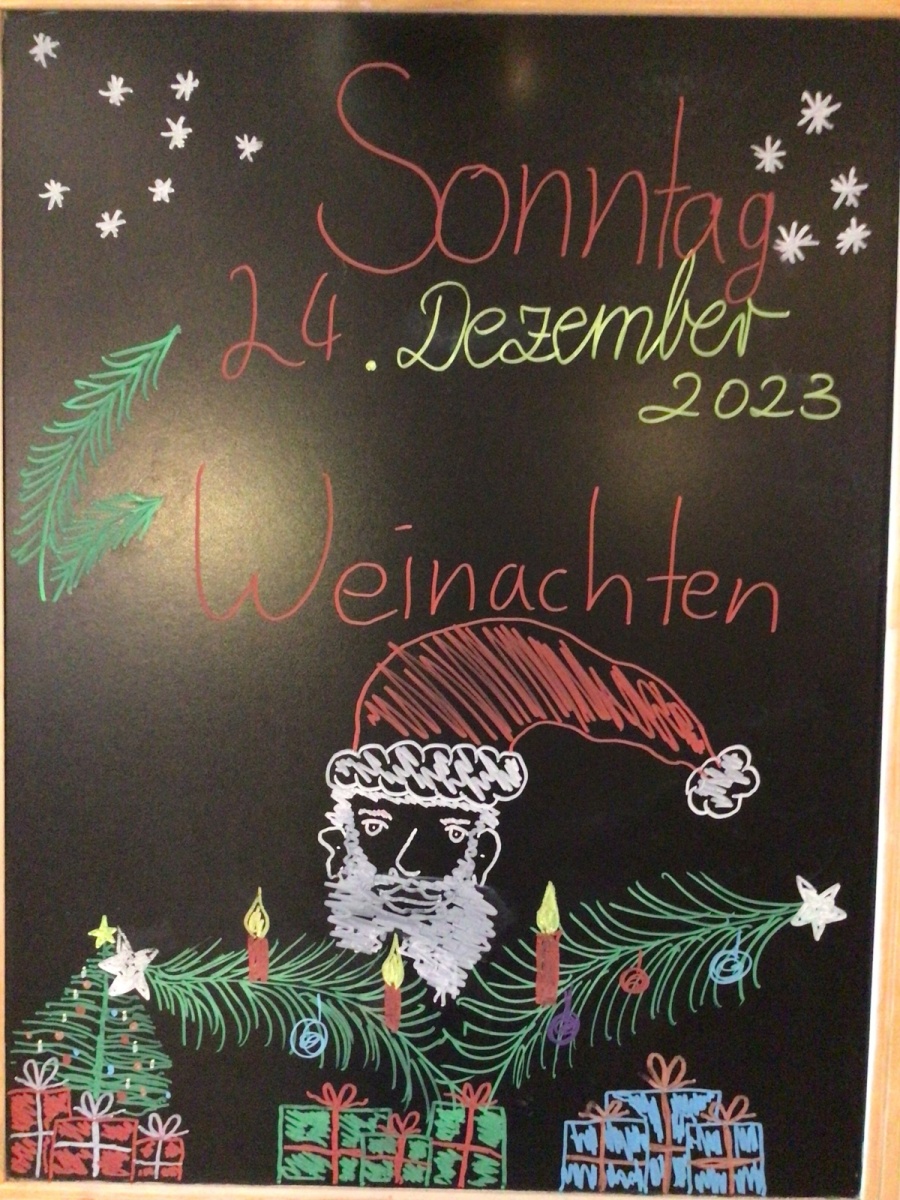 Sonntag
24. Dezember
2023
Weinachten